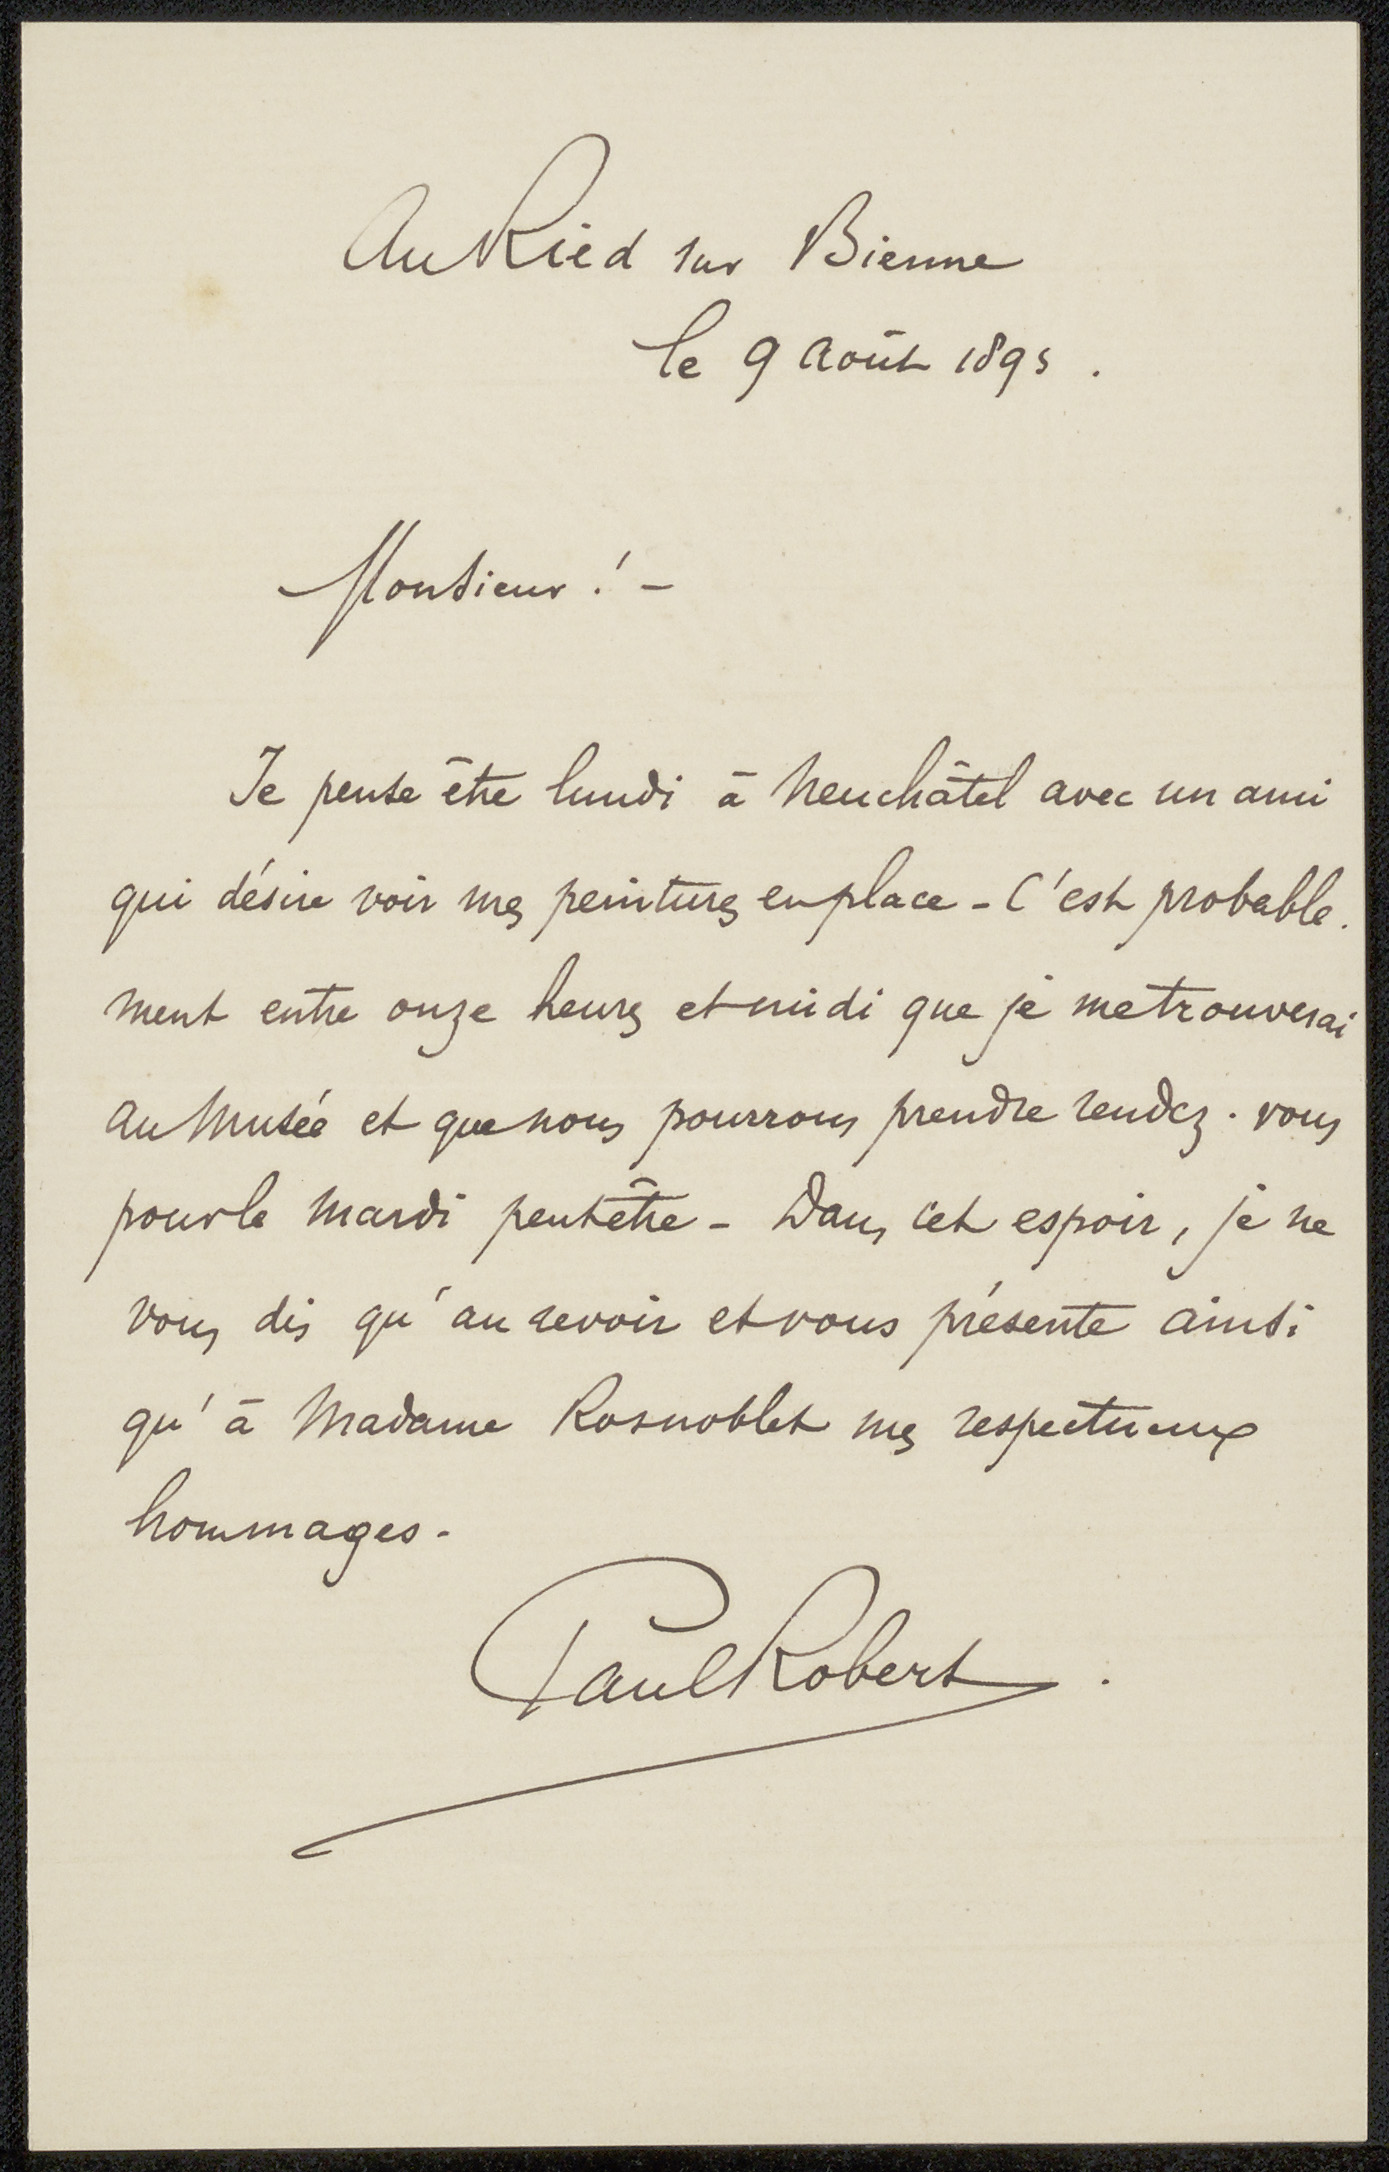 Au Ried sur Bienne
le 9 août 1895.
Monsieur! -
Je pense être lundi à Neuchâtel avec un ami
qui désire voir mes peintures en place - C'est probable-
ment entre onze heures et midi que je me trouverai
au Musée et que nous pourrons prendre rendez-vous
pour le mardi peut être - Dans cet espoir, je ne
vous dis qu'au revoir et vous présente ainsi
qu'à Madame Rosnoblet mes respectueux
hommages -
Paul Robert.